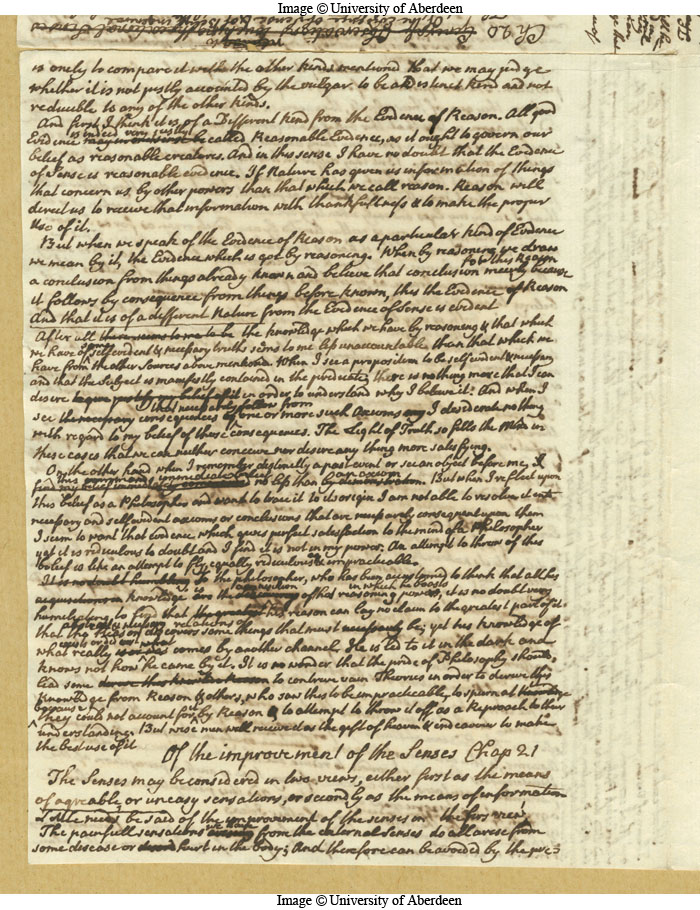 Image © University of Aberdeen
Ch 20
is onely to compare it with the other kinds mentioned that we may judge
whether it is not justly accounted by the vulgar to be a distinct kind and not
reducible to any of the other kinds.
And first, I think it is of a Different kind from the Evidence of Reason. All good
is indeed very justly
Evidence be called Reasonable Evidence, as it ought to govern our
belief as reasonable creatures. And in this sense I have no doubt that the Evidence
of Sense is reasonable evidence. If Nature has given us information of things
that concern us, by other powers than that which we call reason. Reason will
direct us to receive that information with thankfullness & to make the proper
Use of it.
But when we speak of the Evidence of Reason as a particular kind of Evidence
we mean by it, the Evidence which is got by reasoning. When by reasoning we draw
for this Reason
a conclusion from things already known and believe that conclusion meerly because
it follows by consequence from things before known, this the Evidence of Reason
And that it is of a different Nature from the Evidence of Sense is evident
After all there seems to me to be the knowledge which we have by reasoning & that which
some
we have of selfevident & necessary truths seems to me less unaccountable than that which we
have from the other Sources above mentiond. When I see a proposition to be selfevident & necessary
and that the Subject is manifestly contained in the predicate, there is nothing more that I can
desire in order to understand why I believe it: And when I
that necessarily follows from
see the necessary consequences of one or more such Axioms I desiderate nothing
with regard to my belief of these consequences. The Light of Truth so fills the Mind in
these cases that we can neither conceive nor desire any thing more satisfying.
On the other hand when I remember distinctly a past event or see an object before me, I
this an axiom
no less than by demonstration. But when I reflect upon
this belief as a Philosopher and want to trace it to its origin I am not able to resolve it into
necessary and selfevident axioms or conclusions that are necessarily consequent upon them
I seem to want that evidence which gives perfect satisfaction to the mind of a Philosopher
yet it is ridiculous to doubt and I find it is not in my power. An attempt to throw of this
belief is like an attempt to fly equally ridiculous & impracticable.
It is no doubt humbling to the philosopher, who has been accustomed to think that all his
in which he boasts
knowledge the of that reasoning power, it is no doubt very
humiliating to find that his reason can lay no claim to the greatest part of it.
relations
that the Reason discovers some things that must necessarily be; yet his knowledge of
exists or did exist
what really comes by another channel. He is led to it in the dark and
knows not how he came by it. It is no wonder that the pride of Philosophy should
lead some to contrive vain Theories in order to derive this
knowledge from Reason & others, who saw this to be impracticable, to spurn at
because
they could not account for it by Reason & to attempt to throw it off as a Reproach to their
understanding. But wise men will receive it as the gift of heaven & endeavour to make
the best use of it
Of the improvement of the Senses Chap 21
The Senses may be considered in two views, either first as the means
of agreable or uneasy sensations, or secondly as the means of information
Little needs be said of the improvement of the senses on the first view.
we have
The painfull sensations from the external senses do all arise from
some disease or hurt in the body; And therefore can be avoided by the pre=
Image © University of Aberdeen